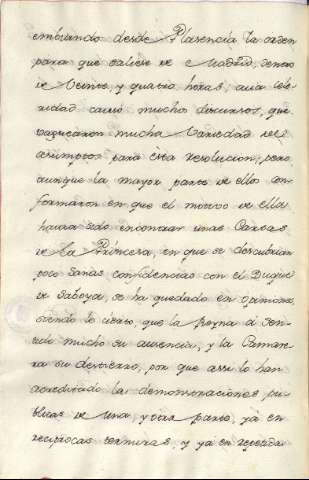 embiando desde Plasencia la orden
para que saliese de Madrid, dentro
de Veinte, y quatro horas, cuia cele-
ridad causó muchos discursos, que
buscaron mucha Variedad de
asumptos para esta resolucion, pero
aunque la mayor parte de ellos con-
formaron en que el motivo de ella,
havia sido encontrar unas Cartas
de la Princesa, en que se descubrian
poco sanas confidencias con el Duque
de Saboya, se ha quedado en opiniones,
siendo lo cierto, que la Reyna à sen-
tido mucho su ausencia, y la Camare-
ra su destierro, por que assi lo han
acreditado las demonstraciones pu-
blicas de una, y otra parte, yà en
reciprocas ternuras, y yà en repetida